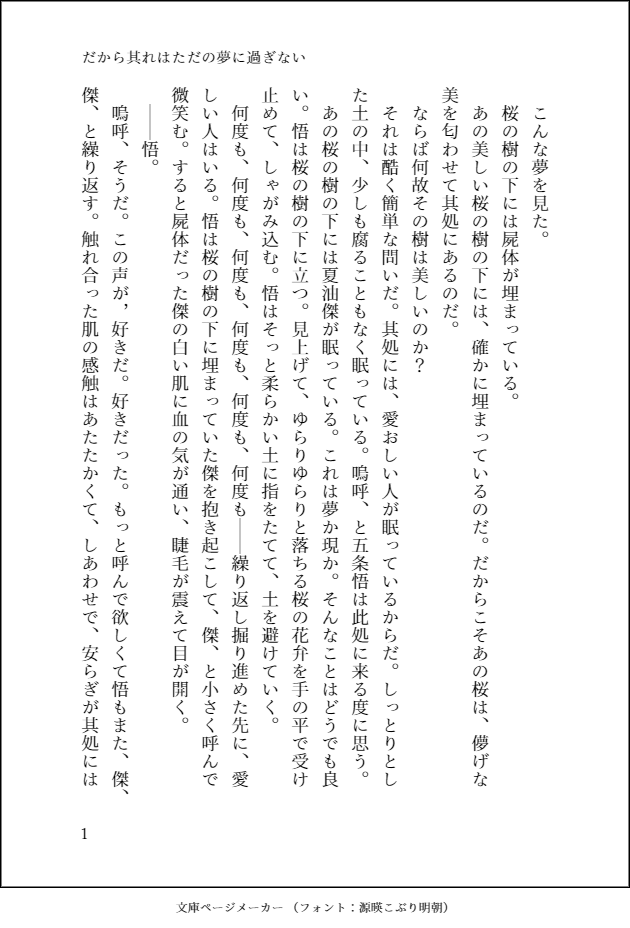 だから其れはただの夢に過ぎない
こんな夢を見た。
桜の樹の下には屍体が埋まっている。
あの美しい桜の樹の下には、確かに埋まっているのだ。だからこそあの桜は、儚げな
美を匂わせて其処にあるのだ。
ならば何故その樹は美しいのか？
それは酷く簡単な問いだ。其処には、愛おしい人が眠っているからだ。しっとりとし
た土の中、少しも腐ることもなく眠っている。嗚呼、と五条悟は此処に来る度に思う。
あの桜の樹の下には夏油傑が眠っている。これは夢か現か。そんなことはどうでも良
い。悟は桜の樹の下に立つ。見上げて、ゆらりゆらりと落ちる桜の花弁を手の平で受け
止めて、しゃがみ込む。悟はそっと柔らかい土に指をたてて、土を避けていく。
何度も、何度も、何度も、何度も、何度も、何度も――繰り返し掘り進めた先に、愛
しい人はいる。悟は桜の樹の下に埋まっていた傑を抱き起こして、傑、と小さく呼んで
微笑む。すると屍体だった傑の白い肌に血の気が通い、睫毛が震えて目が開く。
――悟。
嗚呼、そうだ。この声が、好きだ。好きだった。もっと呼んで欲しくて悟もまた、傑、
傑、と繰り返す。触れ合った肌の感触はあたたかくて、しあわせで、安らぎが其処には
1
文庫ページメーカー（フォント：源暎こぶり明朝）